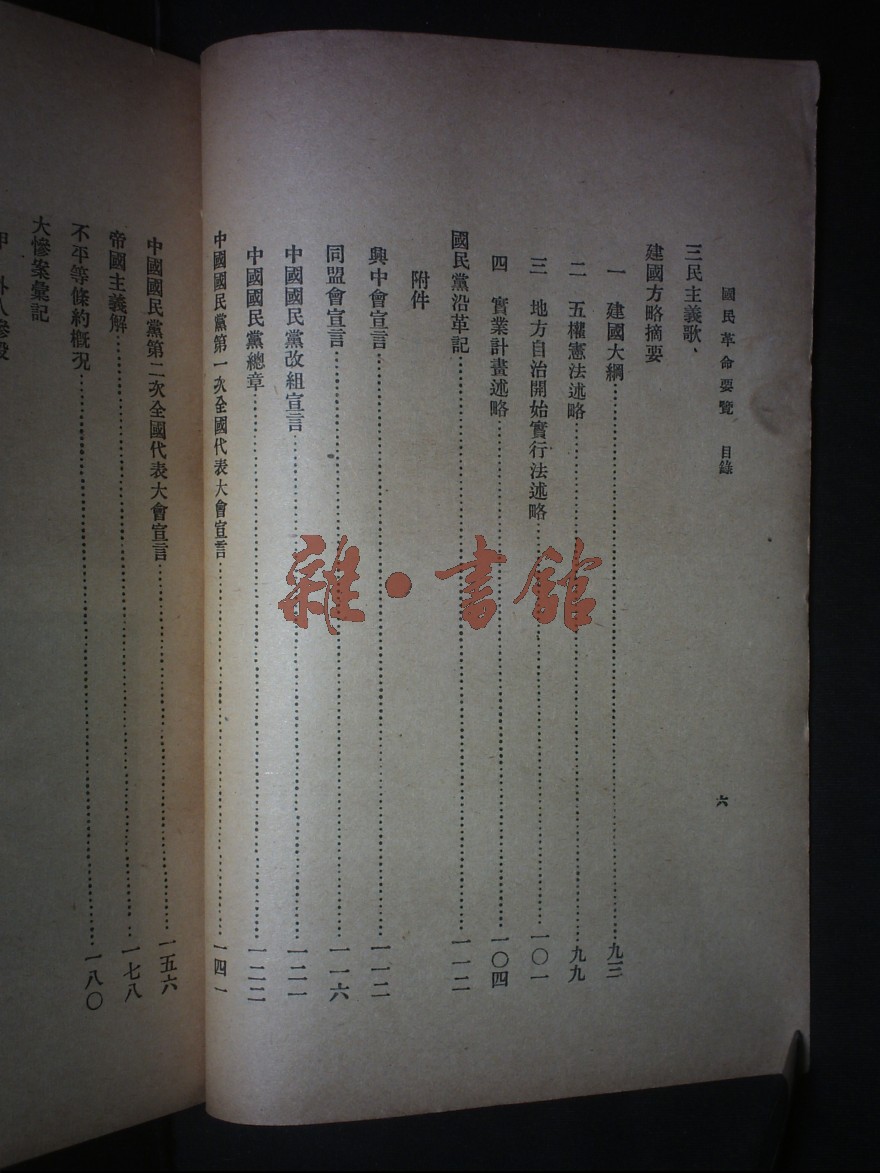 國民革命要覽 目錄 六
三民主義歌、
建國方略摘要
一 建國大綱 九三
二 五權憲法述略 九九
三 地方自治開始實行法述略 一〇一
四 實業計畫述略 一〇四
國民黨沿革記 一一二
附件
興中會宣言 一一二
同盟會宣言 一一六
中國國民黨改組宣言 一二一
中國國民黨總章 一二二
中國國民黨第一次全國代表大會宣言 一四一
中國國民黨第二次全國代表大會宣言 一五六
帝國主義解 一七八
不平等條約概況 一八〇
大慘案彙記
雜·書館